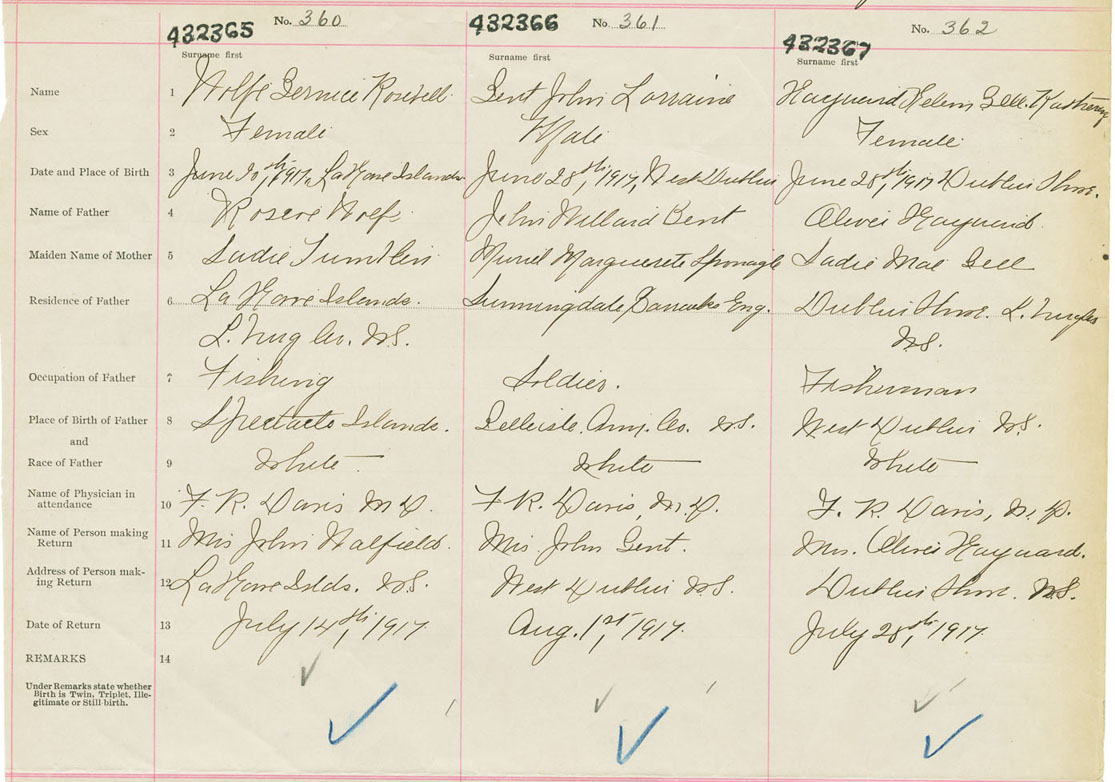 432365 No. 360 432366 No. 361 432367 No. 362
Surname first Surname first Surname first
Name 1 Wolfe Bernice Rosebell Bent John Lorraine Hayward Helen Bell
Sex 2 Female Male Female
Date and Place of Birth 3 June 20th, 1917, LaHave Islands June 28th, 1917, West Dublin June 28th, 1917 Dublin Shore.
Name of Father 4 Roscoe Wolfe John Willard Bent Oliver Hayward.
Maiden Name of Mother 5 Sadie Tumblin Muriel Marguerete Sponagle Sadie Mae Bell
Residence of Father 6 La Have Islands. Sunningdale, Barracks Eng. Dublin Shore. L'burg Co
L'burg Co. N.S. N.S.
Occupation of Father 7 Fishing Soldier. Fisherman
Place of Birth of Father 8 Spectacle Islands. Belleisle. Ann. Co. N.S. West Dublin N.S.
and
Race of Father 9 White White White
Name of Physician in
attendance 10 F. R. Davis M D. F R. Davis, M. D. F. R. Davis, M. D.
Name of Person making
Return 11 Mrs John Hatfield. Mrs John Bent. Mrs. Oliver Hayward.
Address of Person mak-
ing Return 12 LaHave Islds. N.S. West Dublin N.S. Dublin Shore. N.S.
Date of Return 13 July 14th, 1917 Aug. 1st, 1917. July 28th, 1917.
REMARKS 14
Under Remarks state whether
Birth is Twin, Triplet, Ille-
gitimate or Still-birth.